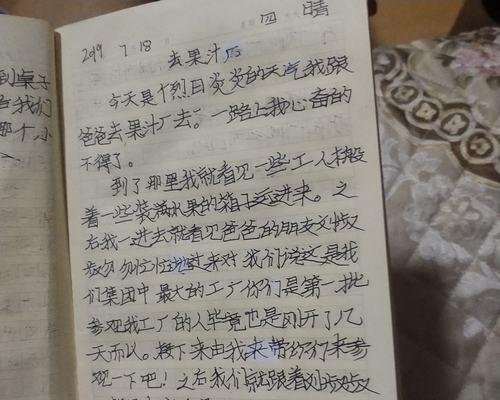 到桌子
我们
那个小
2019 7 18 四 晴
去果汁厂
今天是个烈日炎炎的天气我跟
爸爸去果汁厂去。一路上我心奋的
不得了。
到了那里我就看见一些工人搬
着一些装满水果的箱子运进来。之
后我一进去就看见爸爸的朋友刘叔
叔匆匆忙忙地过来对我们说这是我
们集团中最大的工厂你们是第一批
参观我工厂的人毕竟也是刚开了几
天而以。接下来由我来带你们来参
观一下吧!之后我们就跟着刘叔叔